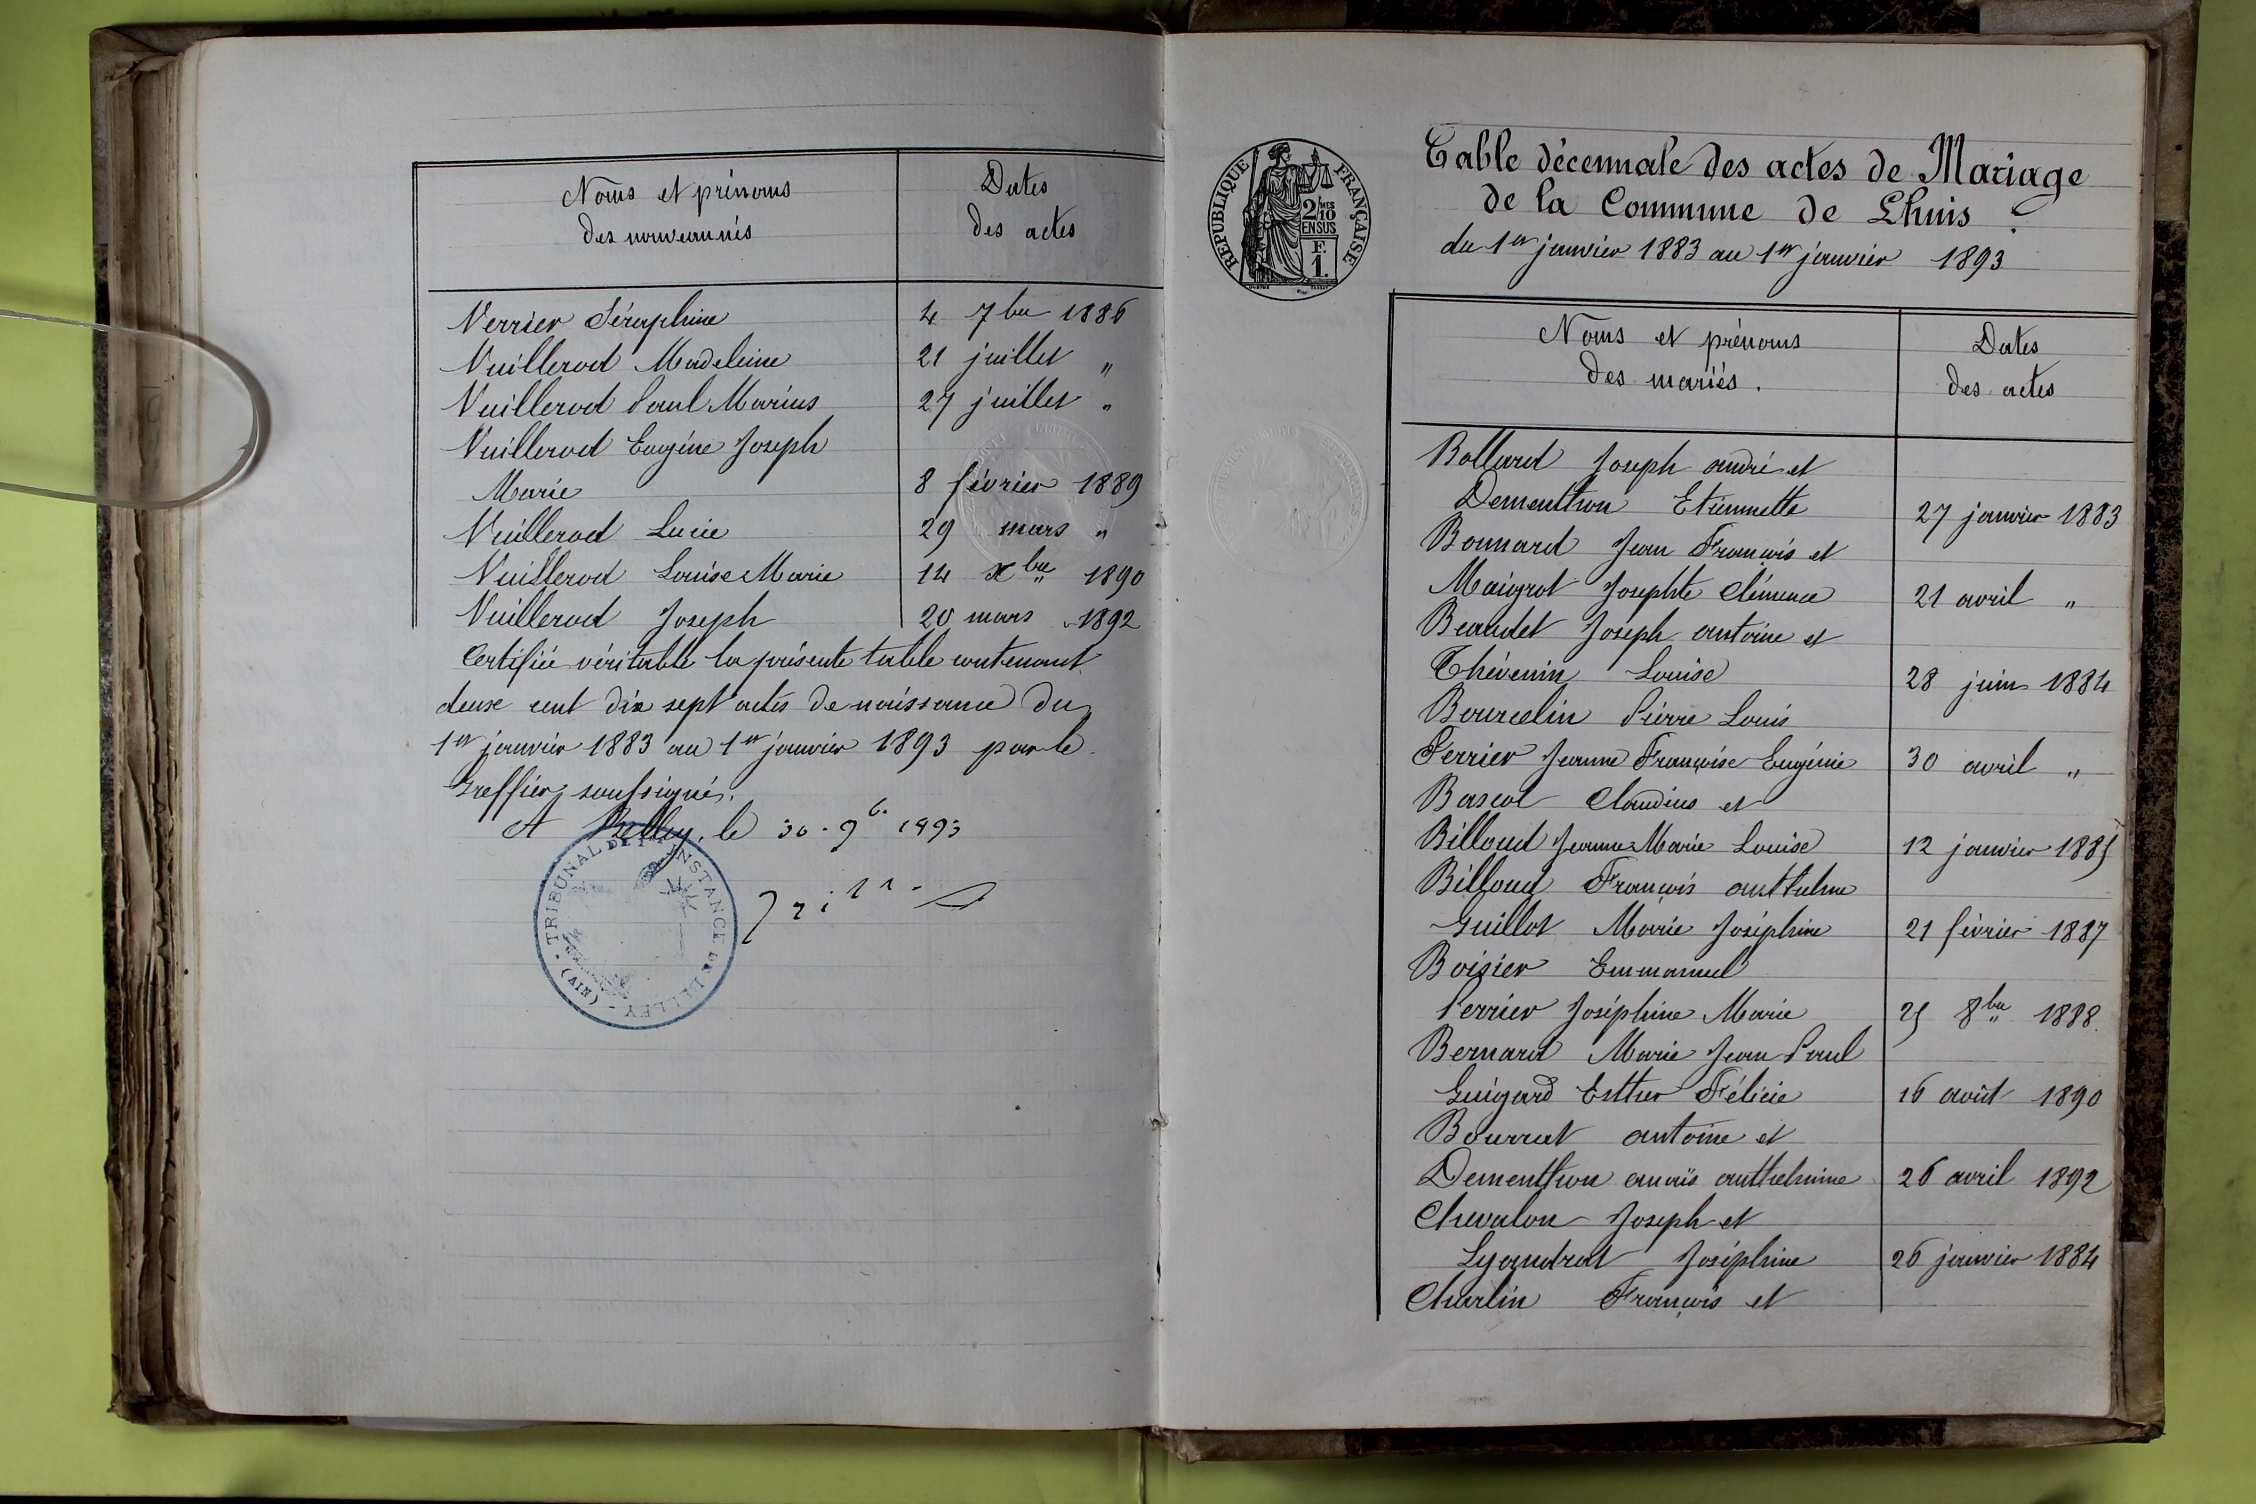 Noms et prénoms
des nouveaunés
Dates
des actes
Verrier Séraphine 4 7bre 1886
Vuillerod Madeleine 21 juillet "
Vuillerod Paul Marius 27 juillet "
Vuillerod Eugène Joseph
Marie 8 février 1889
Vuillerod Lucie 29 mars "
Vuillerod Louise Marie 14 xbre 1890
Vuillerod Joseph 20 mars 1892
Certifiée véritable la présente table contenant
deux cent dix sept actes de naissance du
1er janvier 1883 au 1er janvier 1893 par le
Greffier soussigné.
A Belley, le 30 - 9b. 1893
TRIBUNAL DE 1re INSTANCE DE BELLEY - (AIN) -
RÉPUBLIQUE FRANÇAISE
2/10 MES
EN SUS
F.
1.
Table décennale des actes de Mariage
de la Commune de Lhuis.
du 1er janvier 1883 au 1er janvier 1893
Noms et prénoms
des mariés.
Dates
des actes
Bollard Joseph andré et
Dementhon Etiennette 27 janvier 1883
Bonnard Jean François et
Maigrot Josephte Clémence 21 avril "
Beaudet Joseph antoine et
Thévenin Louise 28 juin 1884
Bourcelin Pierre Louis
Perrier Jeanne Françoise Eugénie 30 avril "
Bascol Claudius et
Billoud Jeanne Marie Louise 12 janvier 1885
Billoud François anthelme
Guillot Marie Joséphine 21 février 1887
Boisier Emmanuel
Perrier Joséphine Marie 25 8bre 1888
Bernard Marie Jean Paul
Guigard Esther Félicie 16 août 1890
Bourrut antoine et
Dementhon anaïs anthelmine 26 avril 1892
Chevalon Joseph et
Lyaudrat Joséphine 26 janvier 1884
Charlin François et